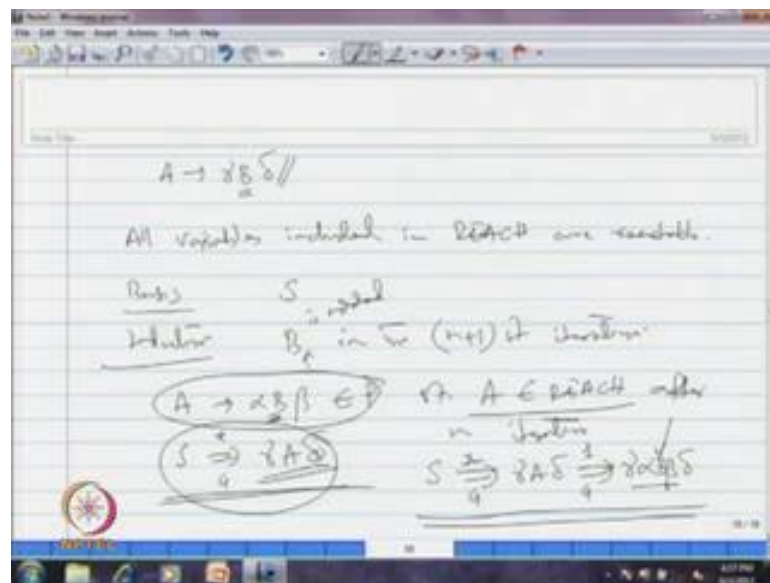 File Edit View Insert Actions Tools Help
A → γBδ //
All variables included in REACH are reachable.
Basis S
Induction B is added in the (n+1)st iteration.
A → αBβ ∈ P st. A ∈ REACH after
n iteration
S ⇒*G γAδ S ⇒*G γAδ ⇒1G γαBβδ
NPTEL